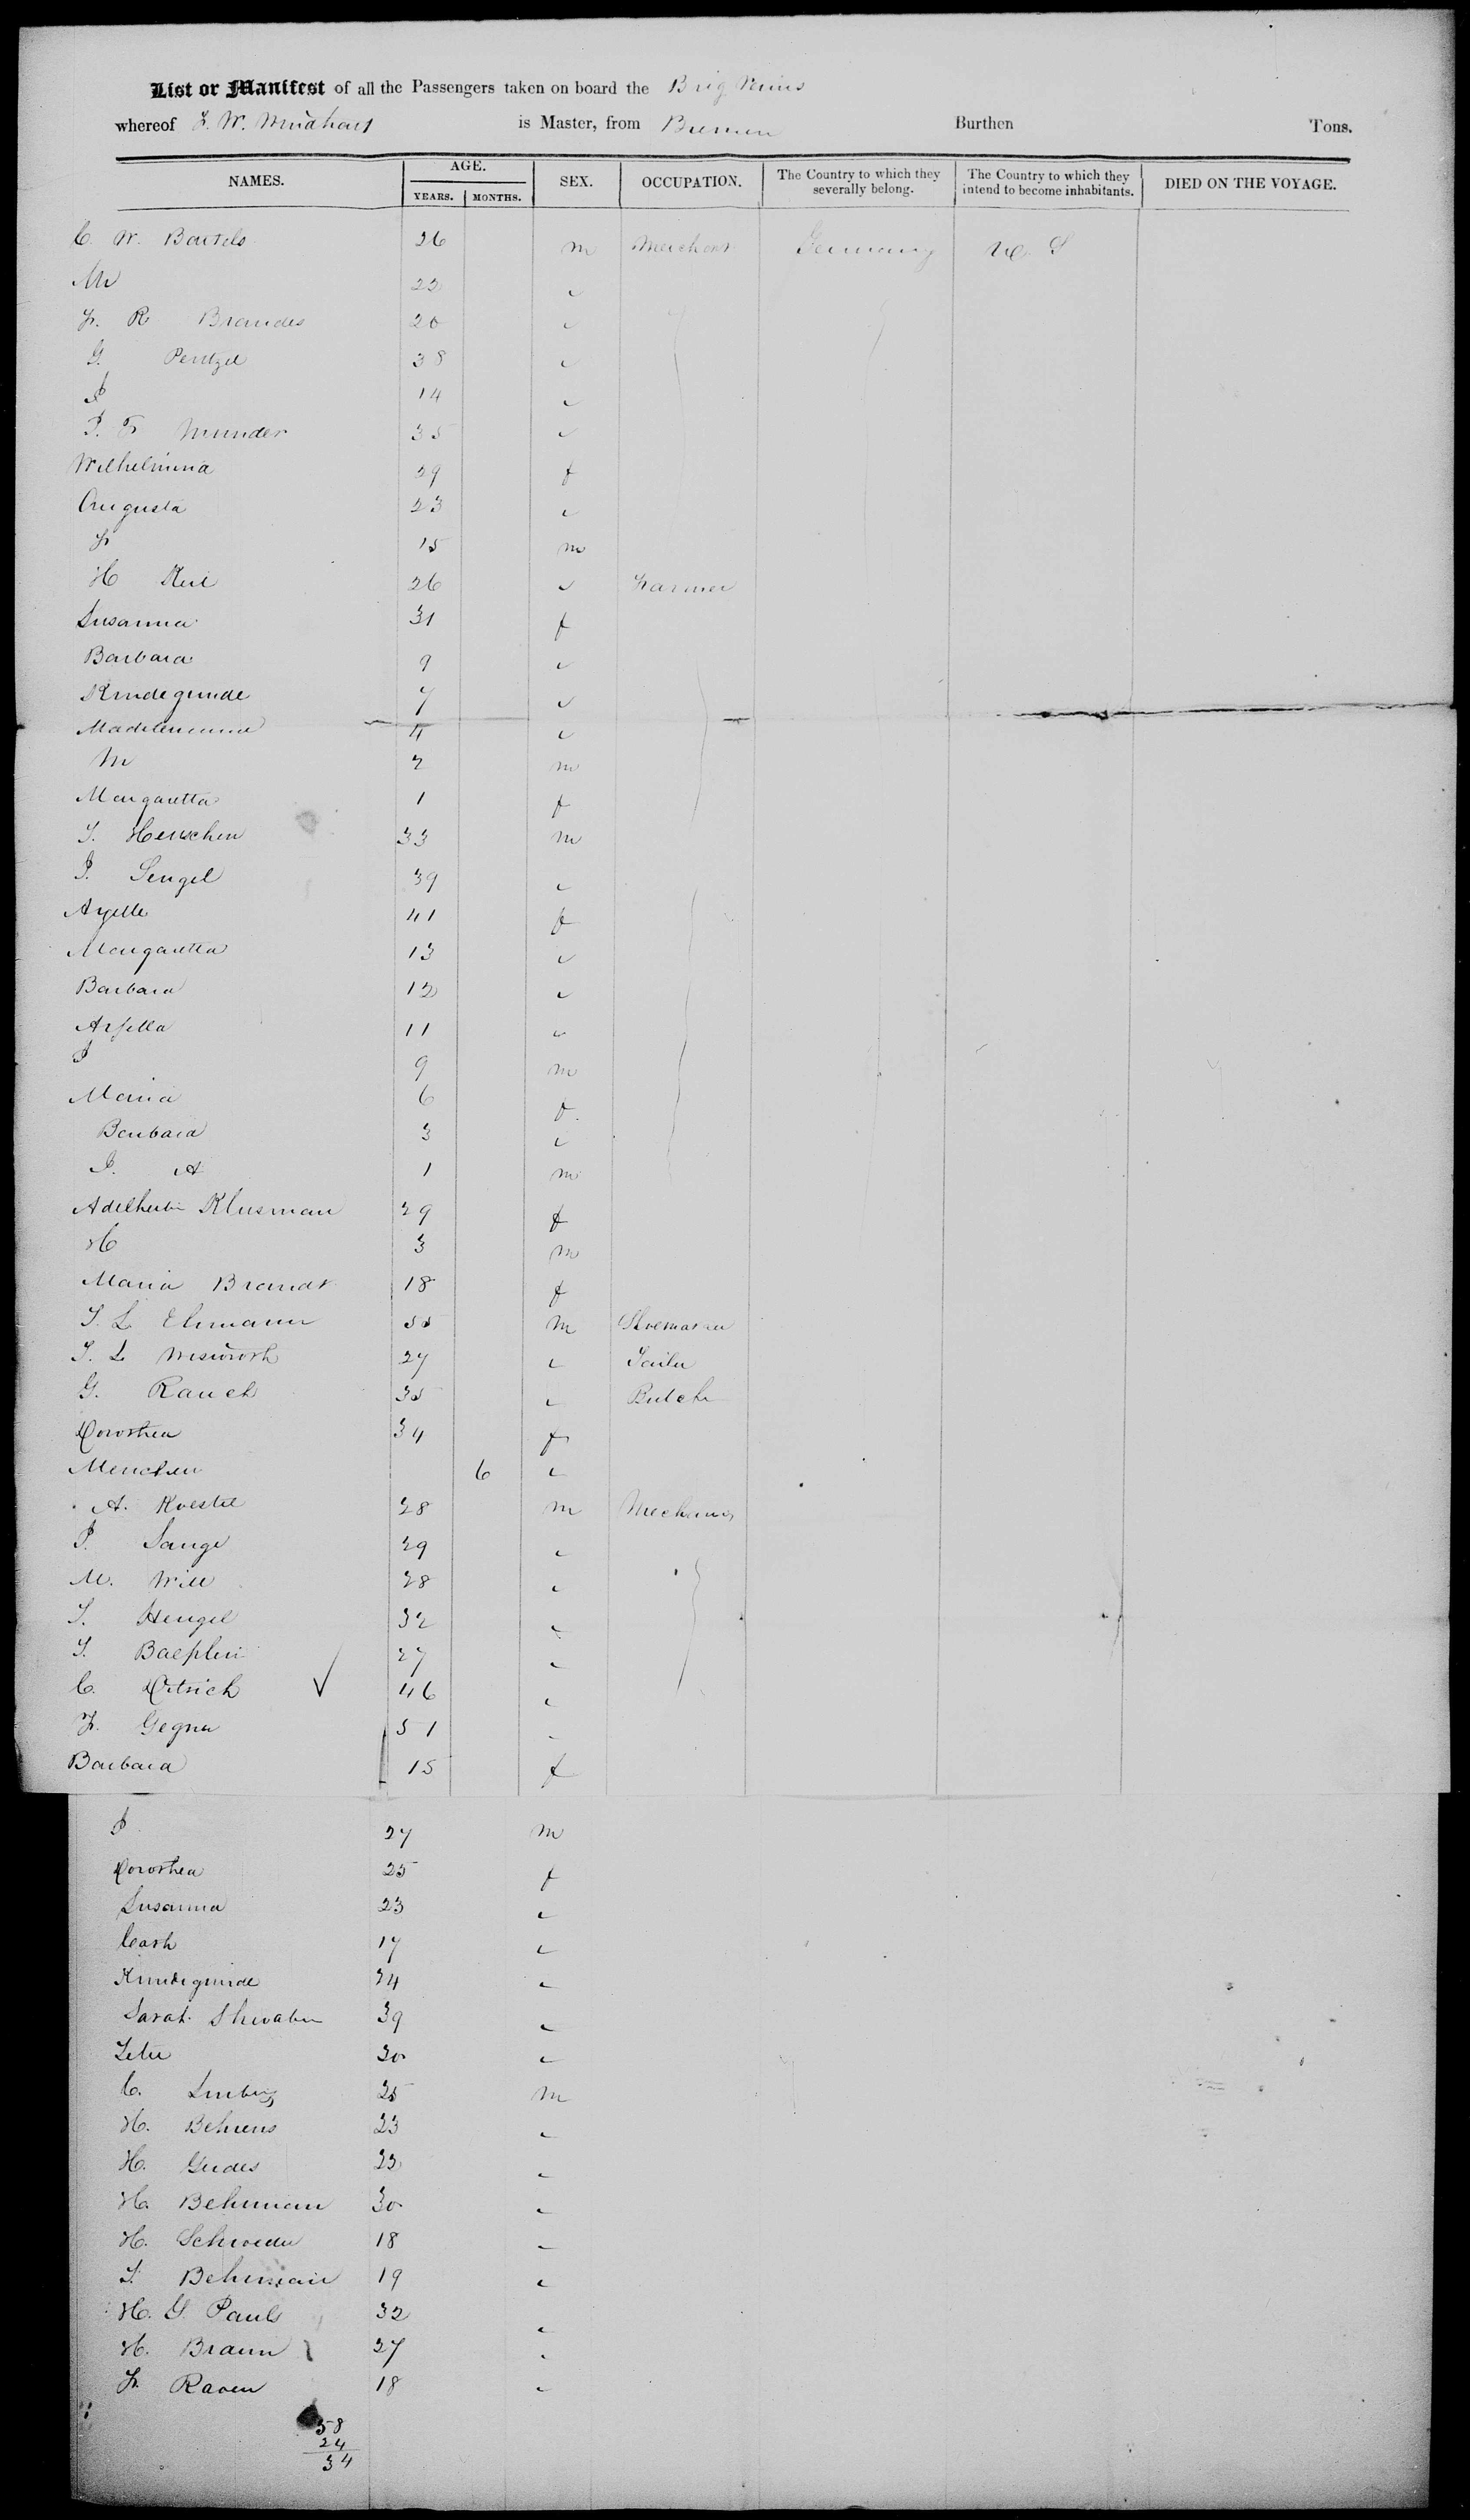 List or Manifest of all the Passengers taken on board the Brig
whereof is Master, from Bremen Burthen Tons.
NAMES. AGE. YEARS. MONTHS. SEX. OCCUPATION. The Country to which they severally belong. The Country to which they intend to become inhabitants. DIED ON THE VOYAGE.
C. W. Bartels 26 m Merchant Germany U. S
W 22 "
Fr. R Brandes 20 "
G. Pentzel 38 "
J 14 "
J. Fr Munder 35 "
Wilhelmina 29 f
Augusta 23 "
Fr 15 m
H Keil 26 " Farmer
Susanna 31 f
Barbara 9 "
Kundegunde 7 "
4 "
M 2 m
Margaretta 1 f
J. Henschen 33 m
J. Sengel 39 "
41 f
Margaretta 13 "
Barbara 12 "
11 "
J 9 m
Maria 6 f.
Barbara 3 "
J. A 1 m
Klusman 29 f
H 3 m
Maria Brandt 18 f
J. L Ehmann 35 m Shoemaker
J. L 27 "
G. Rauch 35 " Butcher
Dorothea 34 f
Menchen 6 "
A. 28 m Mechanic
P. Lange 29 "
M. Will 28 "
J. Hengel 32 "
J. 27 "
C. Ditrich √ 46 "
Fr. 51 "
Barbara 15 f
J 27 m
Dorothea 25 f
Susanna 23 "
17 "
Kundegunde 24 "
Sarah 39 "
30 "
C. 25 m
H. Behrens 23 "
H. Gerdes 23 "
H. Behrman 30 "
H. Schroeder 18 "
J. Behrman 19 "
H. G. Pauls 32 "
H. Braun 27 "
Fr. Raven 18 "
58
24
34